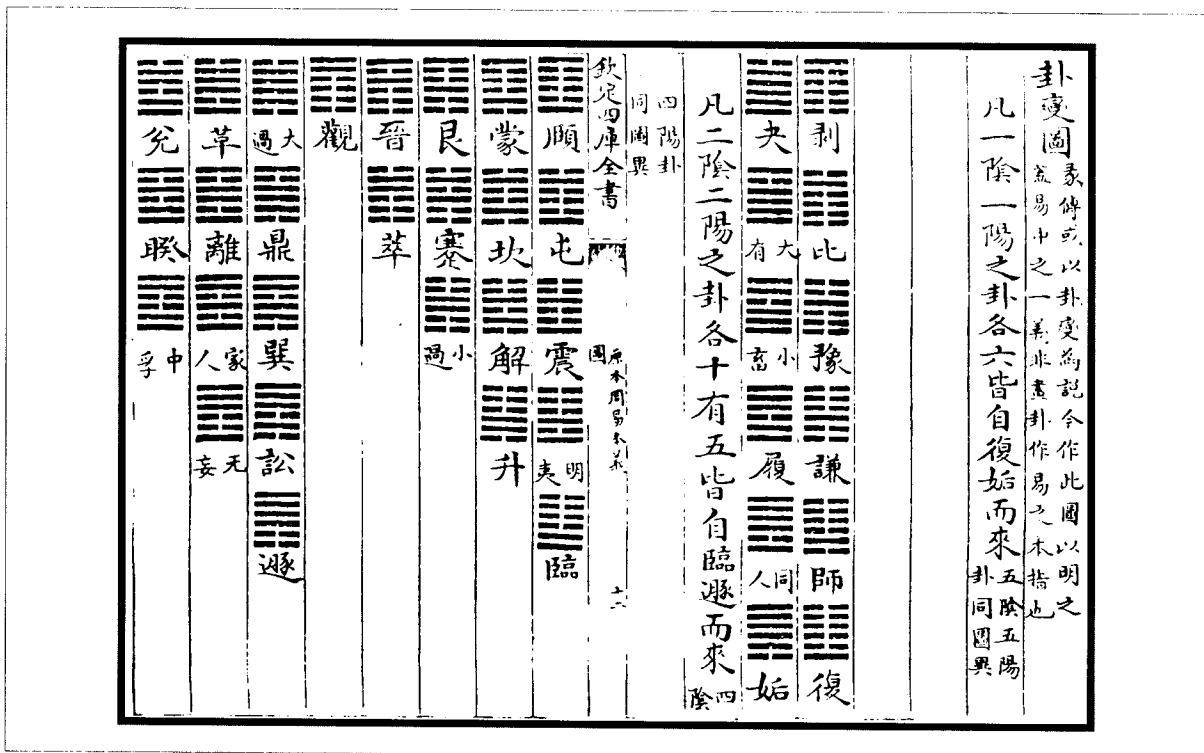 卦變圖
彖傳或以卦變為說今作此圖以明之
蓋易中之一義非畫卦作易之本指也
凡一陰一陽之卦各六皆自復姤而來
五陰五陽
卦同圖異
剥 比 豫 謙 師 復
夬 大有 小畜 履 同人 姤
凡二陰二陽之卦各十有五皆自臨遯而來
四陰
四陽卦
同圖異
欽定四庫全書
原本周易本義
圖
十二
頤 屯 震 明夷 臨
蒙 坎 解 升
艮 蹇 小過
晉 萃
觀
大過 鼎 巽 訟 遯
革 離 家人 无妄
兌 睽 中孚